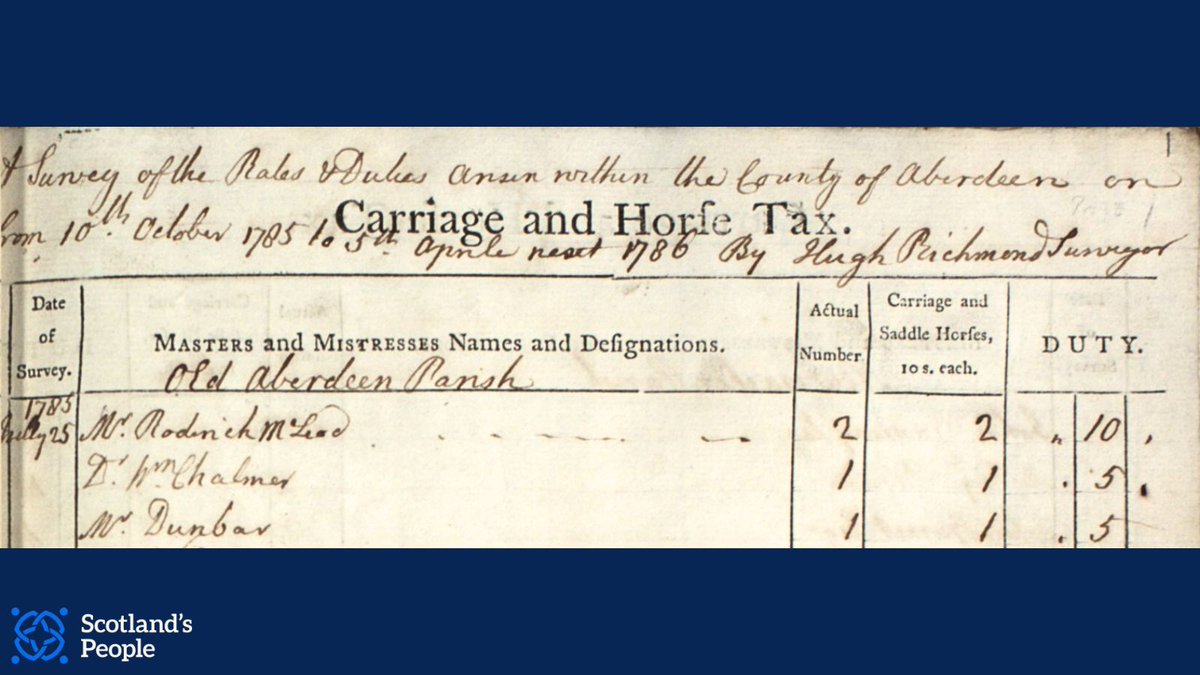 A Survey of the Rates & Duties arisen within the County of Aberdeen on
Carriage and Horſe Tax.
from 10th October 1785 to 5th Aprile next 1786 By Hugh Richmond Surveyor
1
Date of Survey.
MASTERS and MISTRESSES Names and Deſignations.
Actual Number
Carriage and Saddle Horſes, 10 s. each.
DUTY.
Old Aberdeen Pariſh
1785
25 Mr. Roderick McLeod 2 2 " 10 "
Dr. Wm Chalmer 1 1 . 5 .
Mr. Dunbar 1 1 . 5
Scotland's
People